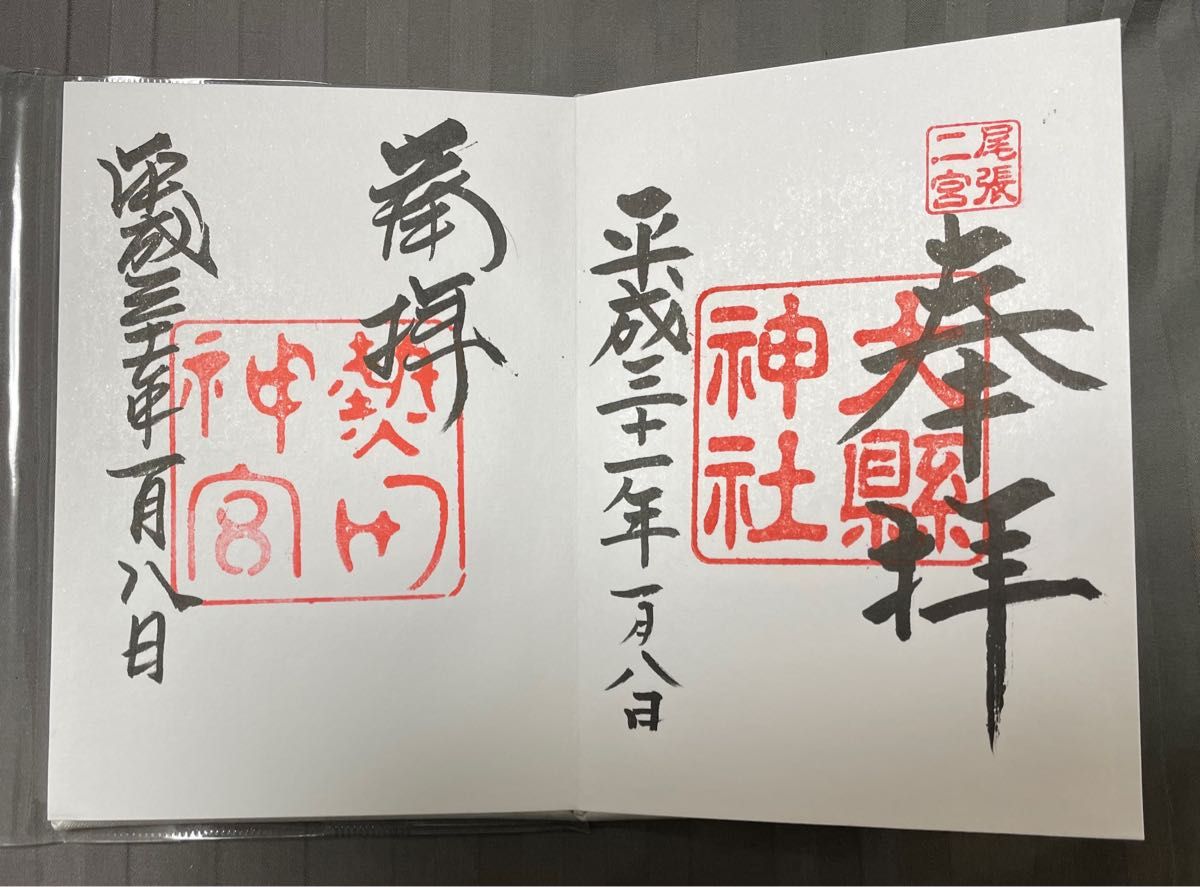 尾張
二宮
奉拝
大縣
神社
平成三十一年一月八日
奉拝
熱田
神宮
平成三十一年一月八日